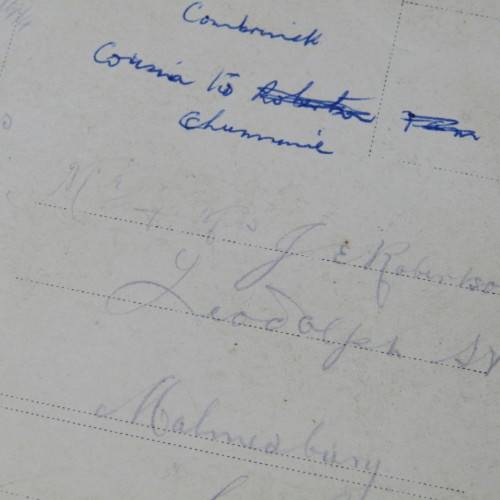 Combrinck
Cousin to Robertson Fam
Chummie
Mr & Mrs J E Robertson
Leodolph St
Malmesbury